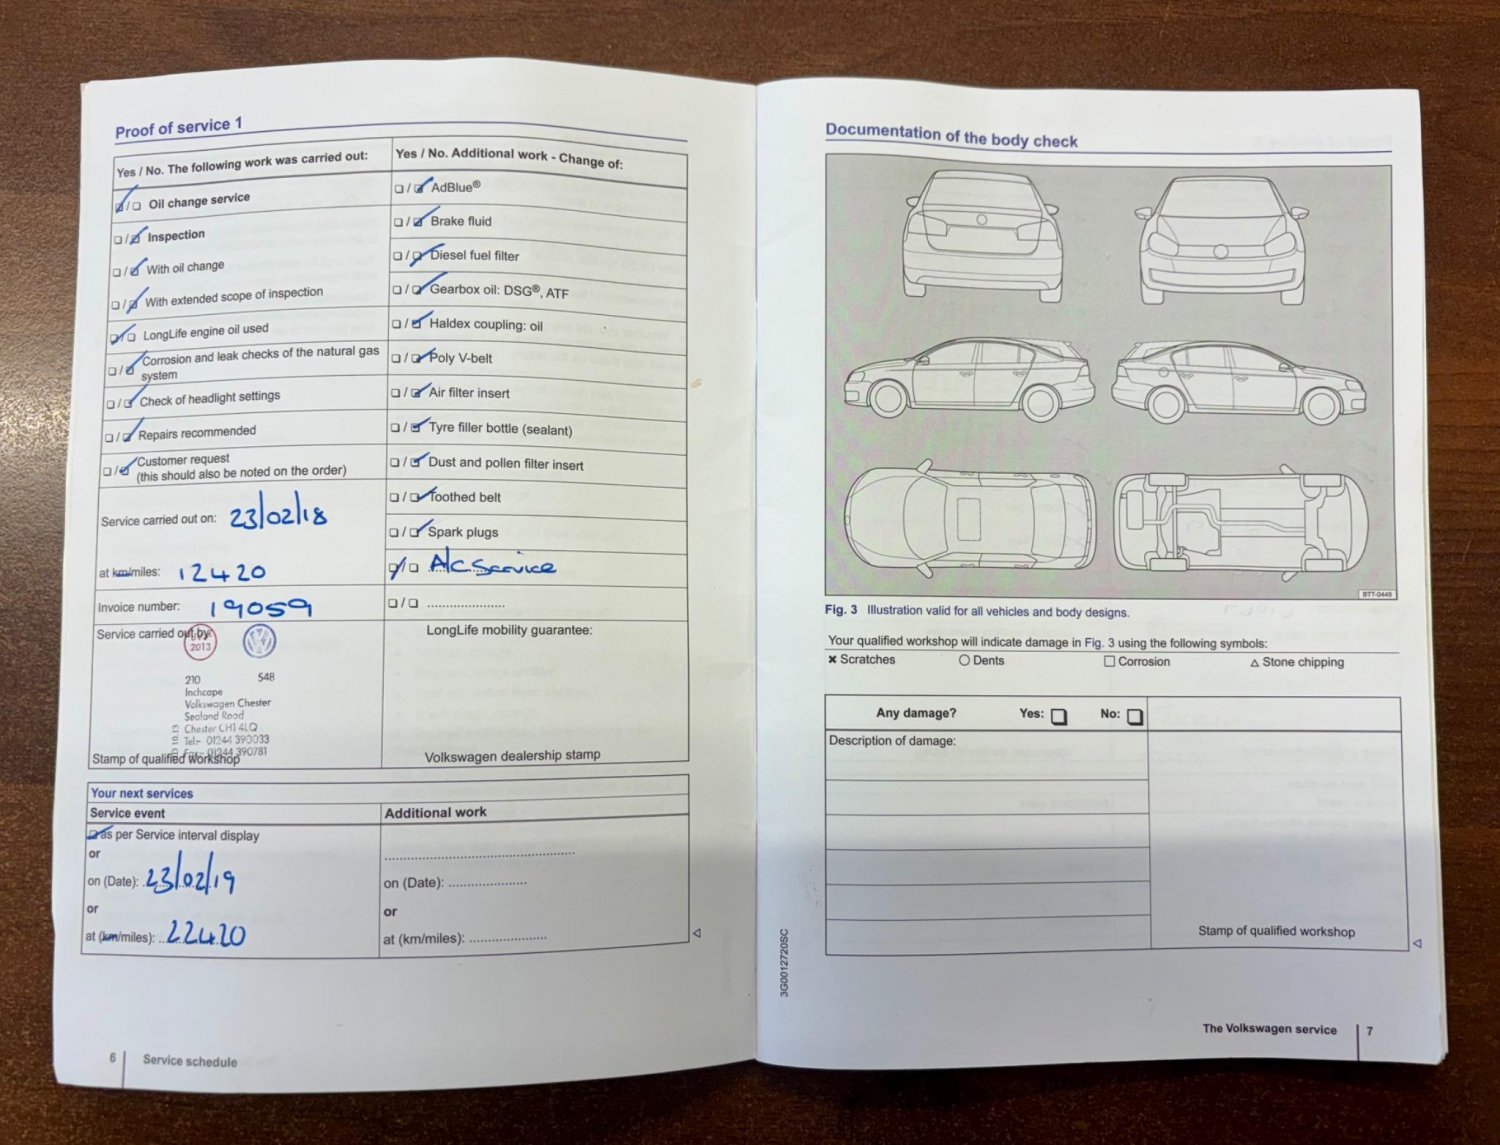 Proof of service 1
Yes / No. The following work was carried out:
☑/☐ Oil change service
☐/☑ Inspection
☐/☑ With oil change
☐/☑ With extended scope of inspection
☑/☐ LongLife engine oil used
☐/☑ Corrosion and leak checks of the natural gas
system
☐/☑ Check of headlight settings
☐/☑ Repairs recommended
☐/☑ Customer request
(this should also be noted on the order)
Service carried out on: 23/02/18
at km/miles: 12420
Invoice number: 19059
Service carried out by:
2013
210 548
Inchcape
Volkswagen Chester
Sealand Road
Chester CH1 4LQ
Tel:- 01244 390033
Fax:- 01244 390781
Stamp of qualified workshop
Yes / No. Additional work - Change of:
☐/☑ AdBlue®
☐/☑ Brake fluid
☐/☑ Diesel fuel filter
☐/☑ Gearbox oil: DSG®, ATF
☐/☑ Haldex coupling: oil
☐/☑ Poly V-belt
☐/☑ Air filter insert
☐/☑ Tyre filler bottle (sealant)
☐/☑ Dust and pollen filter insert
☐/☑ Toothed belt
☐/☑ Spark plugs
☑/☐ A/C Service
☐/☐ ......................
LongLife mobility guarantee:
Volkswagen dealership stamp
Your next services
Service event
☑ as per Service interval display
or
on (Date): 23/02/19
or
at (km/miles): 22420
Additional work
......................
on (Date): ......................
or
at (km/miles): ......................
6 Service schedule
Documentation of the body check
BTT-0449
Fig. 3 Illustration valid for all vehicles and body designs.
Your qualified workshop will indicate damage in Fig. 3 using the following symbols:
✖ Scratches ○ Dents □ Corrosion △ Stone chipping
Any damage? Yes: ☐ No: ☐
Description of damage:
Stamp of qualified workshop
3G0012720SC
The Volkswagen service 7